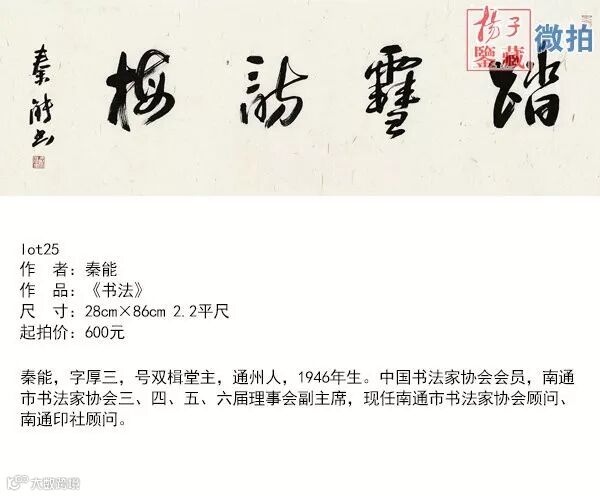 踏雪訪梅
秦能书
揚子
鑒藏
微拍
lot25
作 者：秦能
作 品：《书法》
尺 寸：28cm×86cm 2.2平尺
起拍价：600元
秦能，字厚三，号双楫堂主，通州人，1946年生。中国书法家协会会员，南通
市书法家协会三、四、五、六届理事会副主席，现任南通市书法家协会顾问、
南通印社顾问。